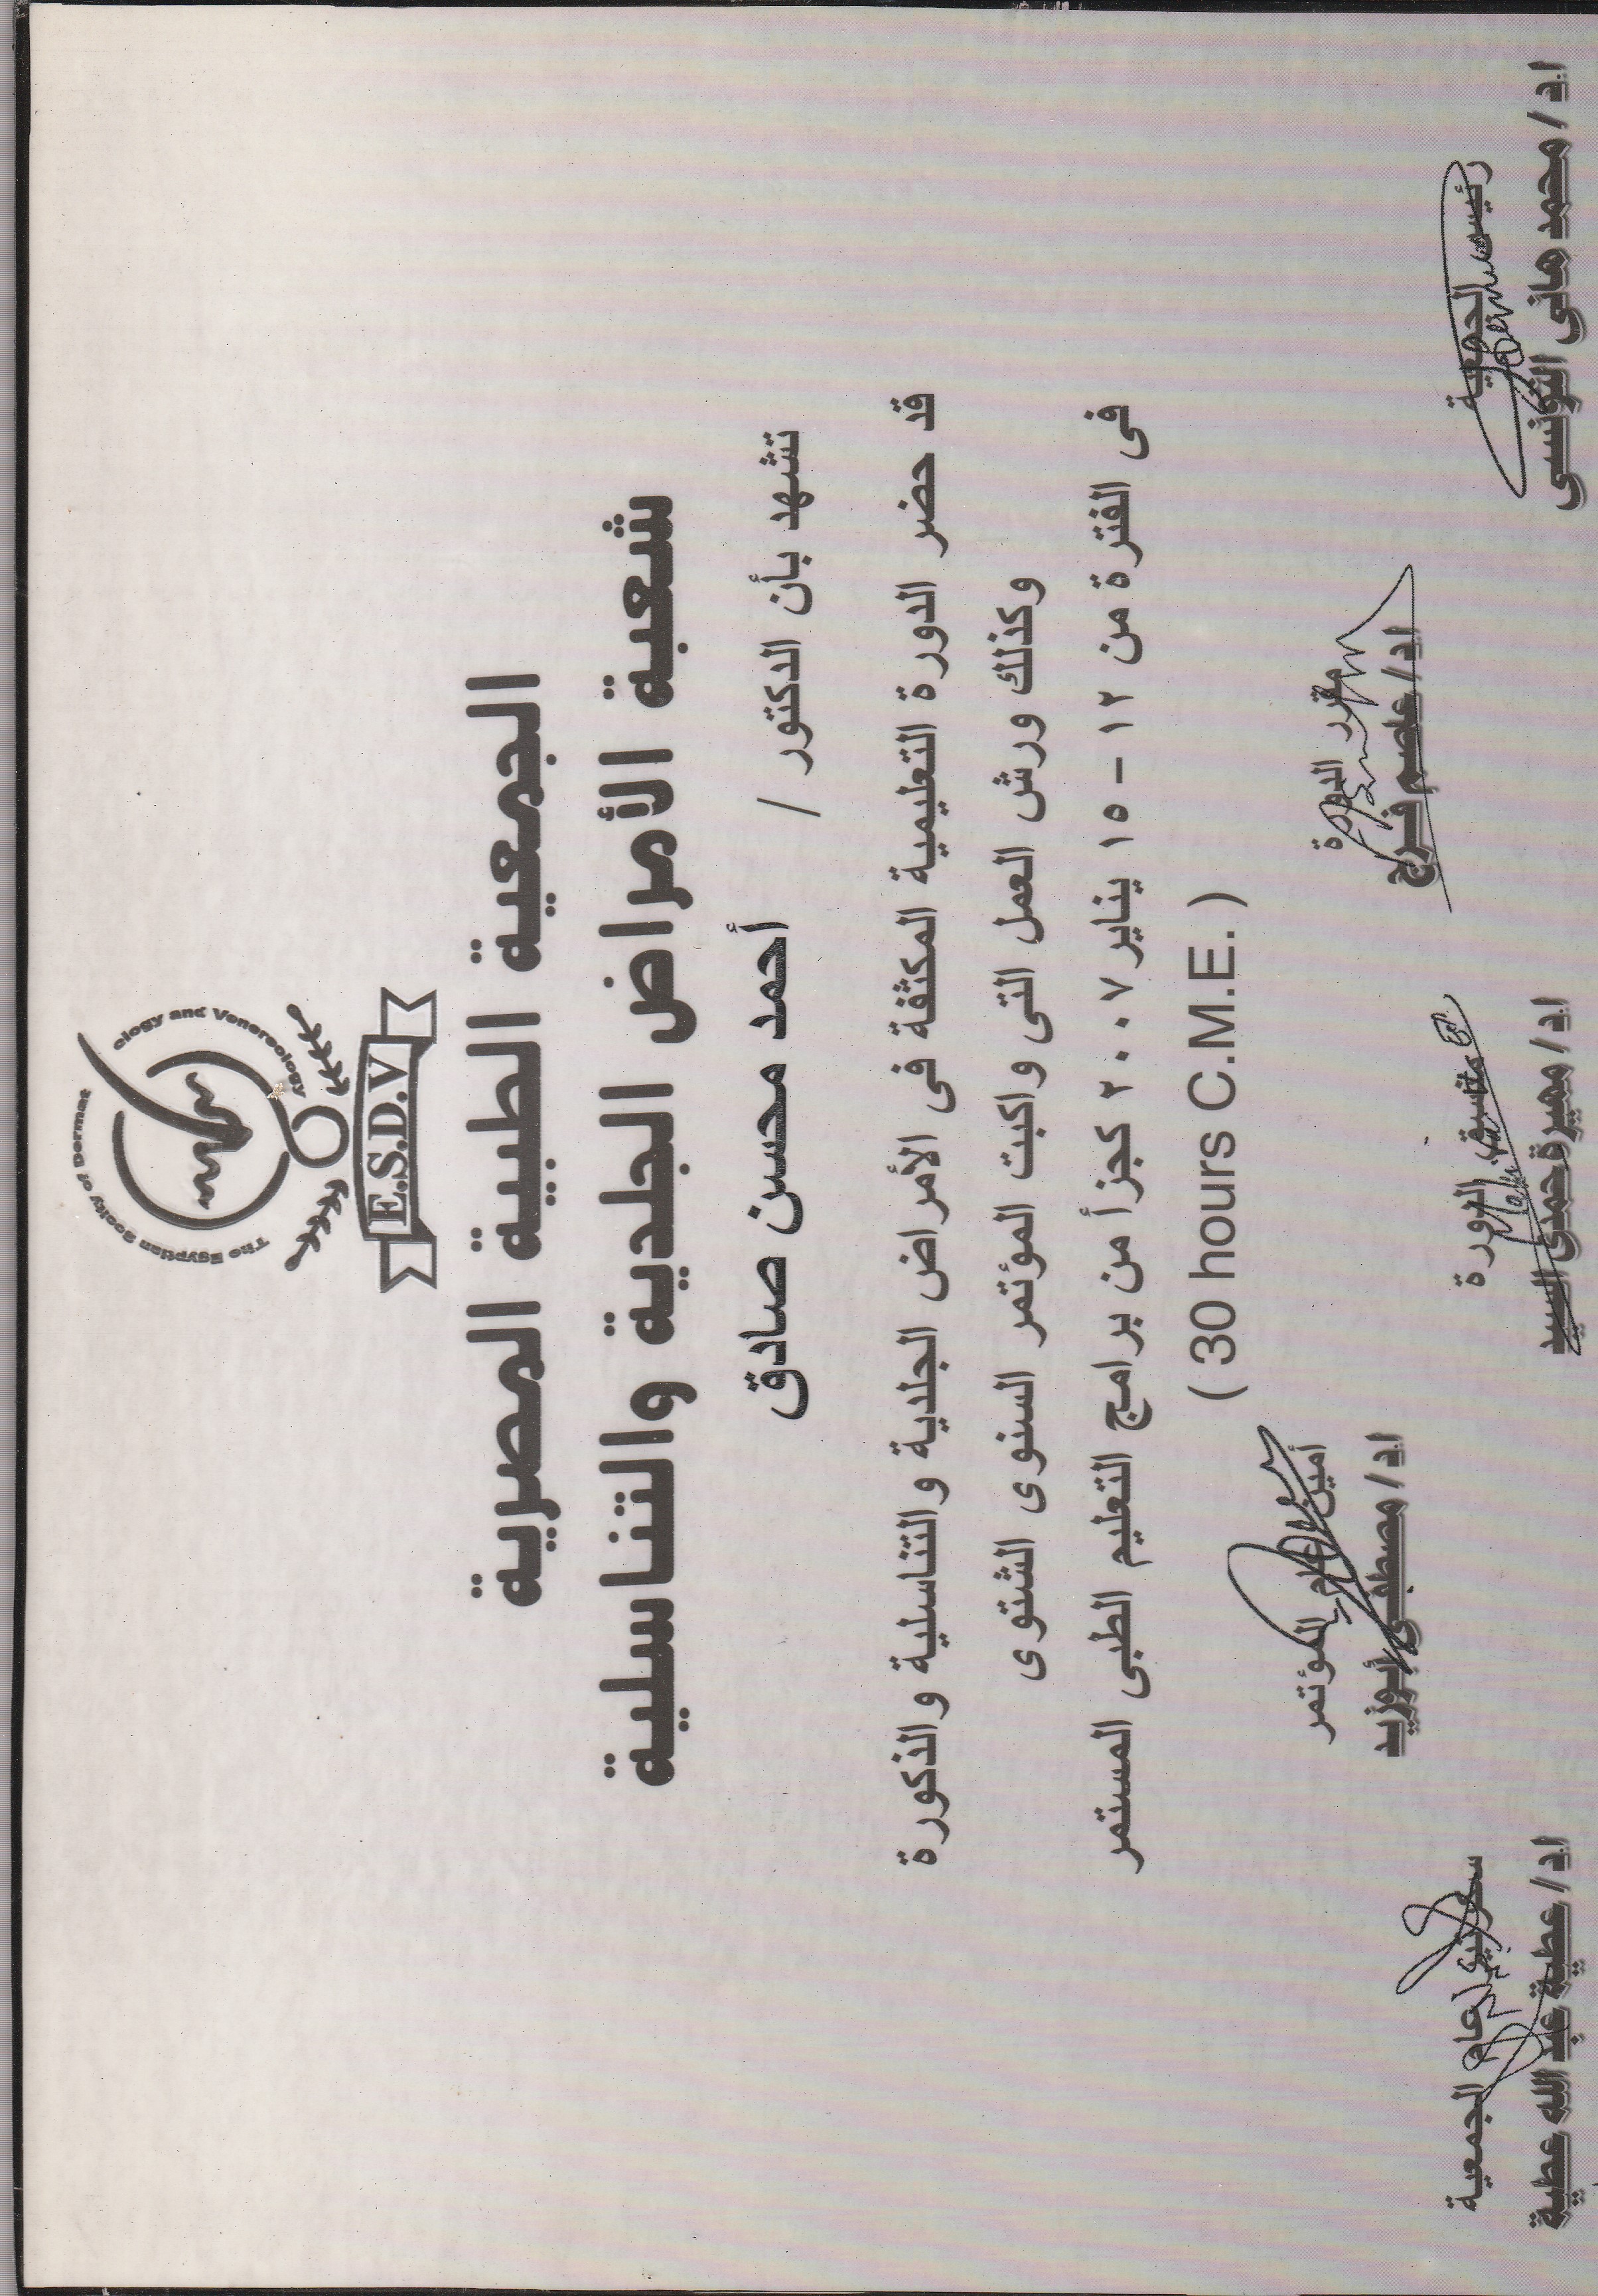 The Egyptian Socity of Dermat ology and Venereology
E.S.D.V
الجمعية الطبية المصرية
شعبة الأمراض الجلدية والتناسلية
تشهد بأن الدكتور / أحمد محسن صادق
قد حضر الدورة التعليمية المكثفة فى الأمراض الجلدية والتناسلية والذكورة
وكذلك ورش العمل التى واكبت المؤتمر السنوى الشتوى
فى الفترة من ١٢ – ١٥ يناير ٢٠٠٧ كجزأ من برامج التعليم الطبى المستمر
( 30 hours C.M.E. )
مقرر الدورة
ا.د/ عاصم فرج
أمين عام المؤتمر
ا.د/ مصطفى أبوزيد
رئيس الجمعية
ا.د/ محمد هانى التونسى
منسق الدورة
ا.د/ مهيرة حمدى السيد
سكرتير عام الجمعية
ا.د/ عطية عبد الله عطية